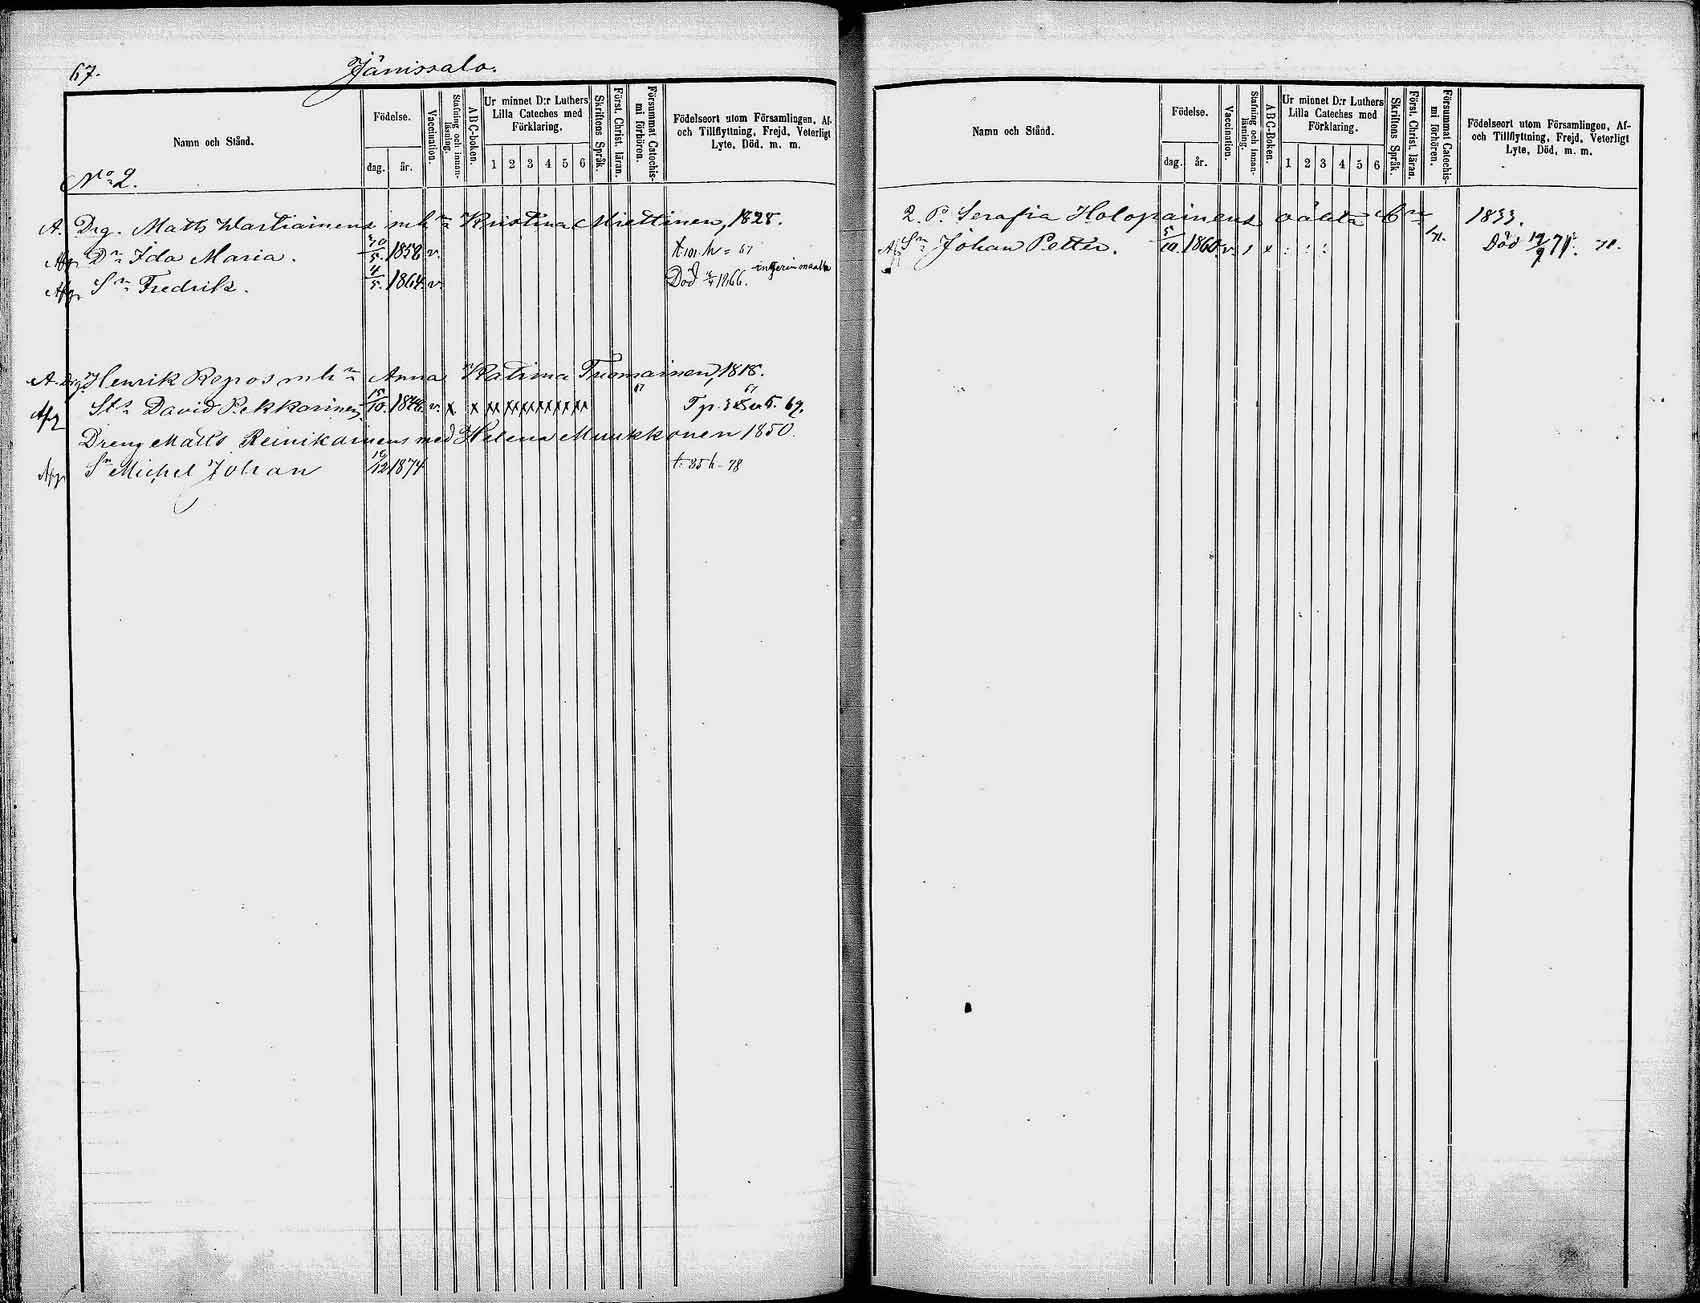 67. Jänissalo.
Namn och Stånd.
Födelse.
dag. år.
Vaccination.
Stafning och innanläsning.
ABC-boken.
Ur minnet D:r Luthers Lilla Cateches med Förklaring.
1 2 3 4 5 6
Skriftens Språk.
Först. Christ. läran.
Försummat Catechismi förhören.
Födelseort utom Församlingen, Af- och Tillflyttning, Frejd, Veterligt Lyte, Död, m. m.
No 2.
A. Drg. Matts Wartiainens Kristina Miettinen, 1828.
Afg. Dr Ida Maria. 5. 1858 v. t. 101. h = 67
Afg. Sn Fredrik. 4/5. 1864. v. Död 1866.
A Henrik Repos Anna Katrina Tuomainen, 1818.
Afg David Pekkarinen, 10. v. x x xx xx xx xx xx xx xx 67 69.
Dreng Matts Reinikainens med Helena Muukkonen 1850.
Afg. Sn Michel Johan 12 1874 t. 85 h - 78
Namn och Stånd.
Födelse.
dag. år.
Vaccination.
Stafning och innanläsning.
ABC-boken.
Ur minnet D:r Luthers Lilla Cateches med Förklaring.
1 2 3 4 5 6
Skriftens Språk.
Först. Christ. läran.
Försummat Catechismi förhören.
Födelseort utom Församlingen, Af- och Tillflyttning, Frejd, Veterligt Lyte, Död, m. m.
2. P. Serafia Holopainens oäkta 1833.
Sn Johan Petter. 5/10. 1860. v. Död 71.